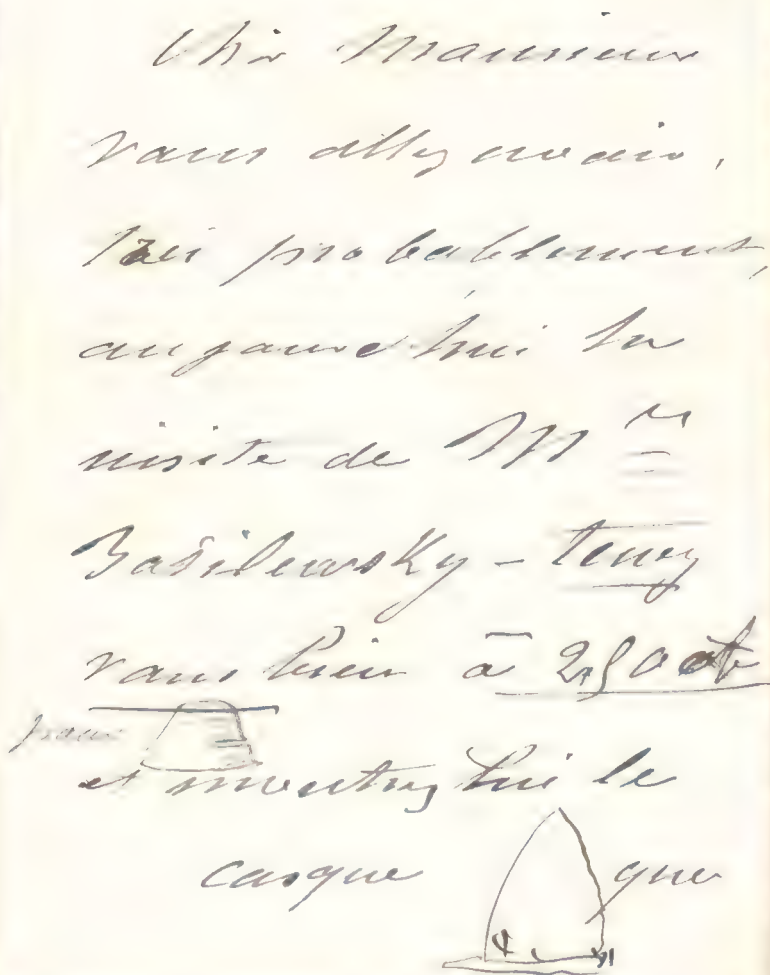 Cher Monsieur
vous allez avoir,
très probablement,
aujourd'hui la
visite de Mr
Basilewsky - tenez
vous bien à 2,500 fr
pour
et montrez lui le
casque que